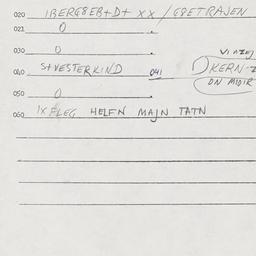 020 1BERG8EB+D+ XX / GBETRAJEN
021 0
030 0
040 S+VESTERKIND 041 KERN-
050 0 ON
060 1X FLEG HELEN MAJN TATN